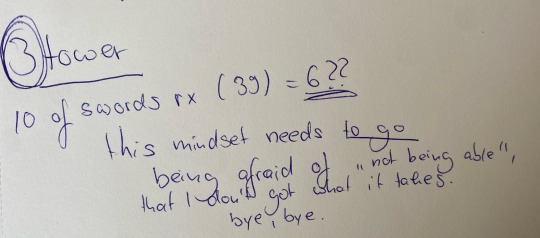 3 tower
10 of swords rx (39) = 6??
this mindset needs to go
being afraid of "not being able",
that I don't got what it takes.
bye, bye.